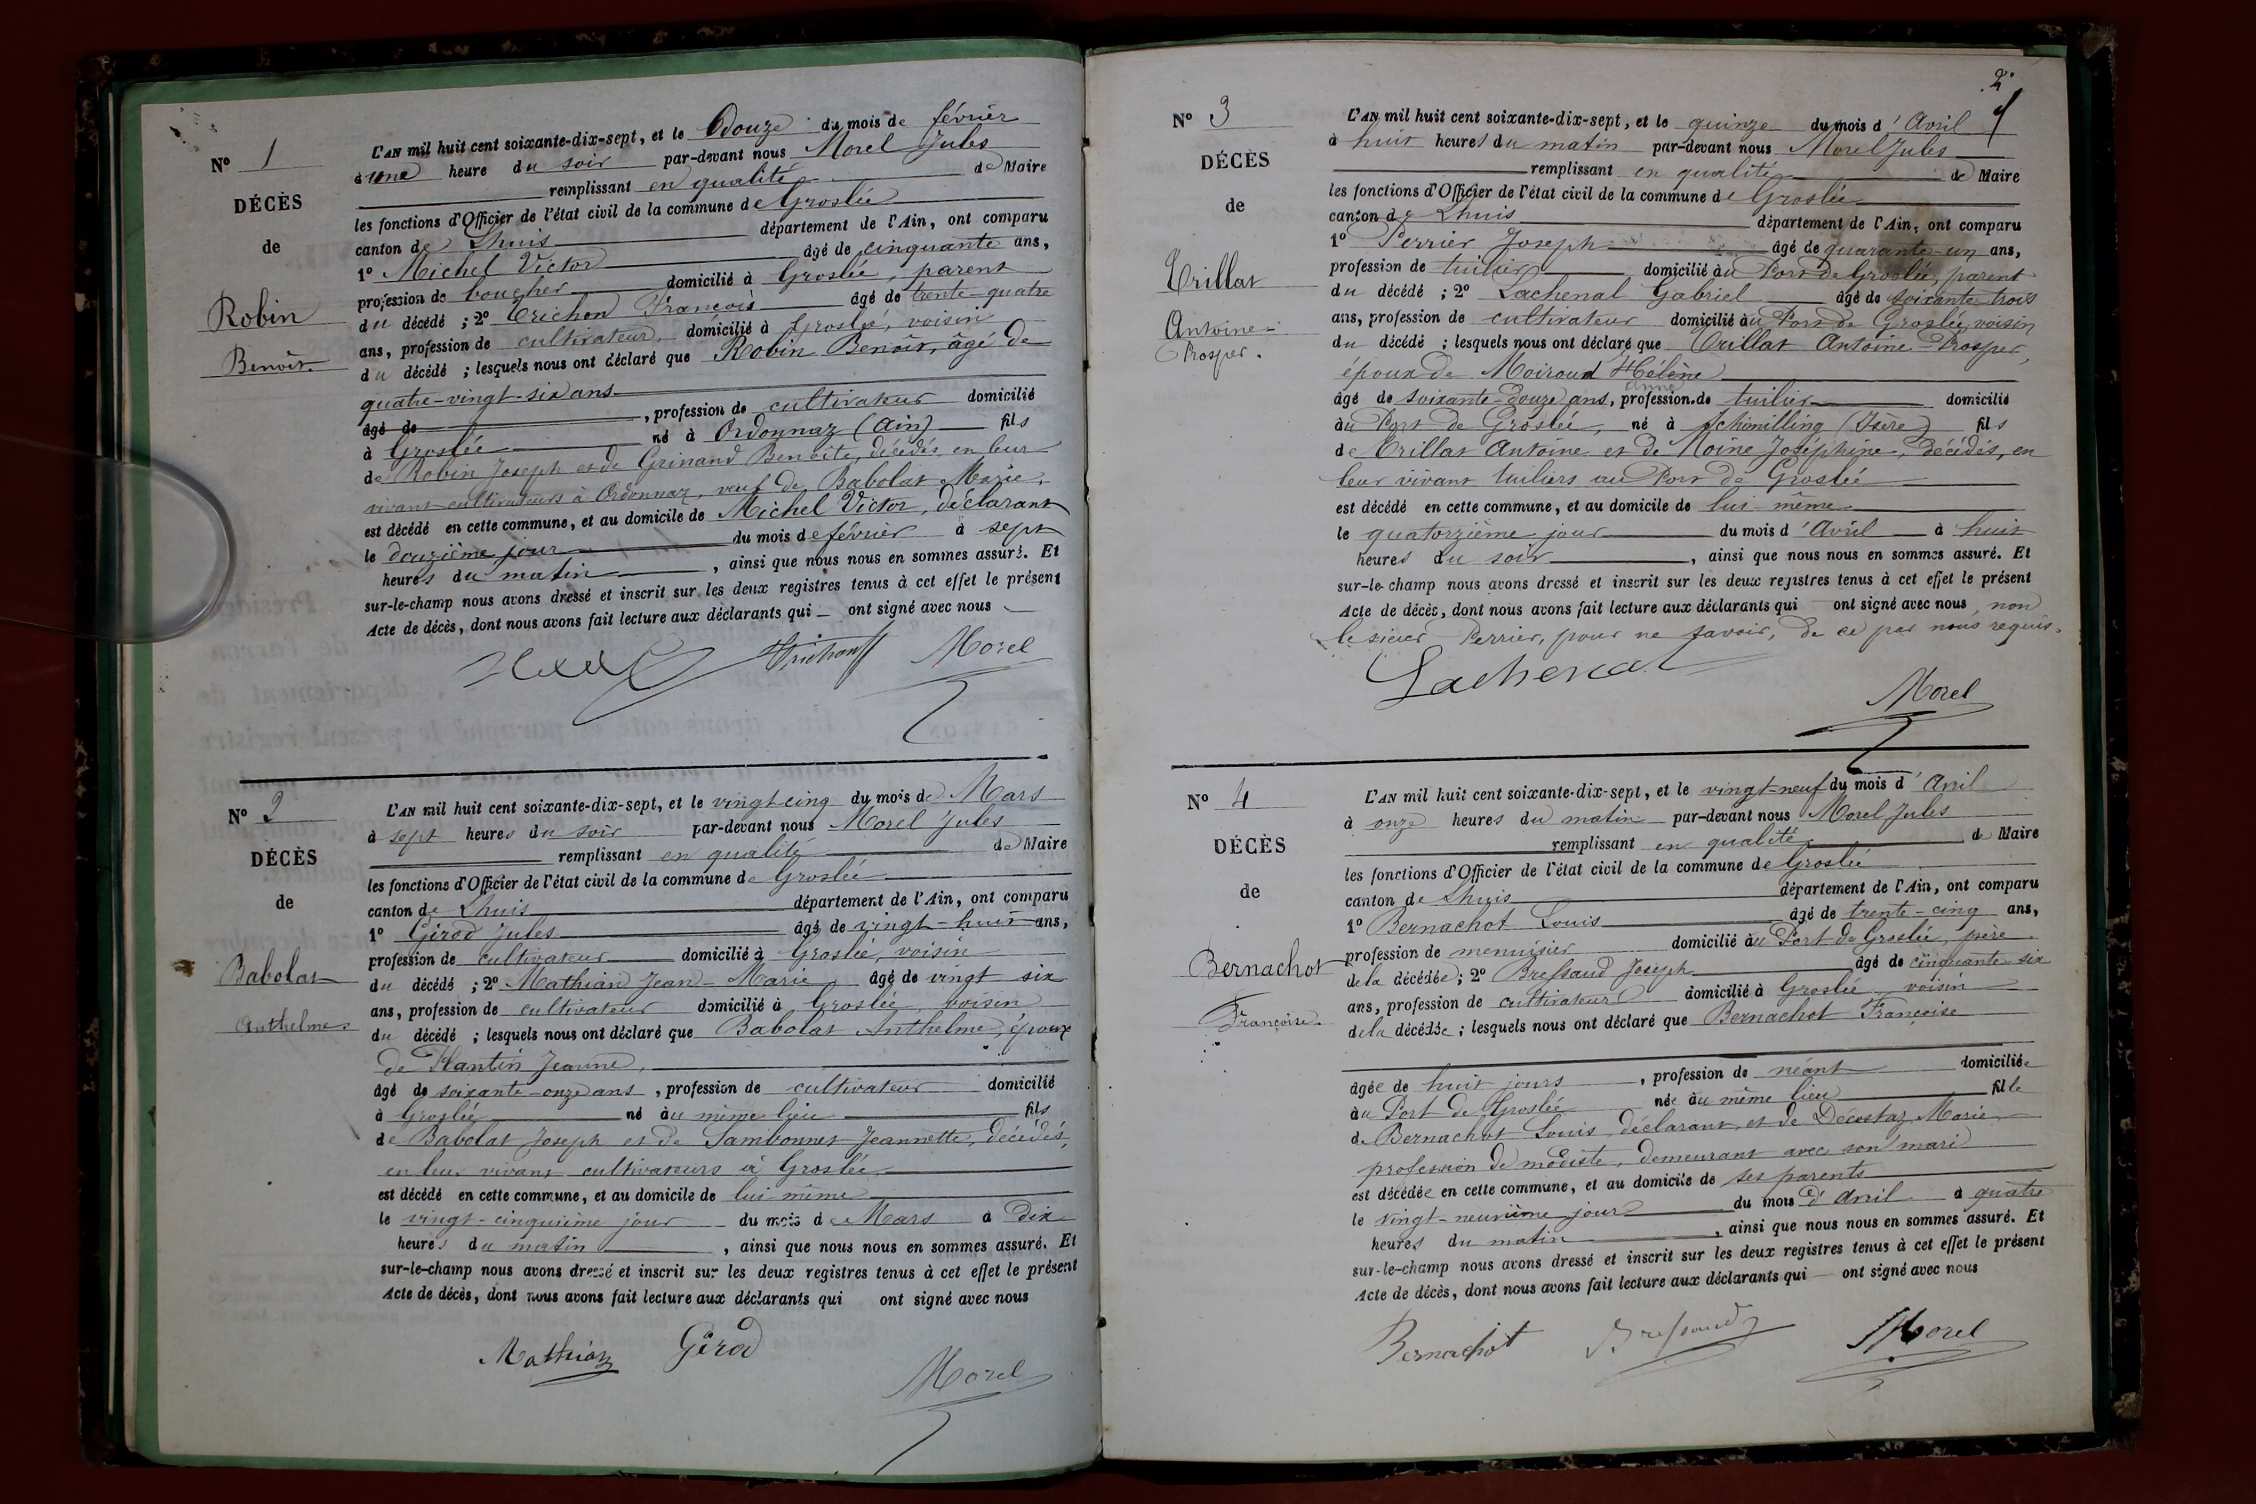 N° 1
DÉCÈS
de
Robin
Benoît.
L'AN mil huit cent soixante-dix-sept, et le douze du mois de février
à une heure du soir par-devant nous Morel Jules
remplissant en qualité de Maire
les fonctions d'Officier de l'état civil de la commune de Groslée
canton de Lhuis département de l'Ain, ont comparu
1° Michel Victor âgé de cinquante ans,
profession de boucher domicilié à Groslée, parent
du décédé ; 2° Trichon François âgé de trente-quatre
ans, profession de cultivateur, domicilié à Groslée, voisin
du décédé ; lesquels nous ont déclaré que Robin Benoît, âgé de
quatre-vingt-six ans
âgé de , profession de cultivateur domicilié
à Groslée né à Ordonnaz (Ain) fils
de Robin Joseph et de Grinand Benoîte, décédés, en leur
vivant cultivateurs à Ordonnaz, veuf de Babolat Marie,
est décédé en cette commune, et au domicile de Michel Victor, déclarant
le douzième jour du mois de février à sept
heures du matin , ainsi que nous nous en sommes assuré. Et
sur-le-champ nous avons dressé et inscrit sur les deux registres tenus à cet effet le présent
Acte de décès, dont nous avons fait lecture aux déclarants qui ont signé avec nous
Trichon Morel
N° 2
DÉCÈS
de
Babolat
Anthelme.
L'AN mil huit cent soixante-dix-sept, et le vingt-cinq du mois de Mars
à sept heures du soir par-devant nous Morel Jules
remplissant en qualité de Maire
les fonctions d'Officier de l'état civil de la commune de Groslée
canton de Lhuis département de l'Ain, ont comparu
1° Girod Jules âgé de vingt-huit ans,
profession de cultivateur domicilié à Groslée, voisin
du décédé ; 2° Mathian Jean-Marie âgé de vingt six
ans, profession de cultivateur domicilié à Groslée, voisin
du décédé ; lesquels nous ont déclaré que Babolat Anthelme, époux
de Plantin Jeanne,
âgé de soixante-onze ans , profession de cultivateur domicilié
à Groslée né au même lieu fils
de Babolat Joseph et de Jambonnet Jeannette, décédés,
en leur vivant cultivateurs à Groslée
est décédé en cette commune, et au domicile de lui-même
le vingt-cinquième jour du mois de Mars à dix
heures du matin , ainsi que nous nous en sommes assuré. Et
sur-le-champ nous avons dressé et inscrit sur les deux registres tenus à cet effet le présent
Acte de décès, dont nous avons fait lecture aux déclarants qui ont signé avec nous
Mathian Girod
Morel
2
N° 3
DÉCÈS
de
Trillat
Antoine-
Prosper.
L'AN mil huit cent soixante-dix-sept, et le quinze du mois d'Avril
à huit heures du matin par-devant nous Morel Jules
remplissant en qualité de Maire
les fonctions d'Officier de l'état civil de la commune de Groslée
canton de Lhuis département de l'Ain, ont comparu
1° Perrier Joseph âgé de quarante-un ans,
profession de tuilier domicilié au Port de Groslée, parent
du décédé ; 2° Lachenal Gabriel âgé de soixante-trois
ans, profession de cultivateur domicilié au Port de Groslée, voisin
du décédé ; lesquels nous ont déclaré que Trillat Antoine-Prosper,
époux de Moiroud Hélène
anne
âgé de soixante-douze ans, profession de tuilier domicilié
au Port de Groslée, né à Schimilling (Isère) fils
de Trillat Antoine et de Moine Joséphine, décédés, en
leur vivant tuiliers au Port de Groslée
est décédé en cette commune, et au domicile de lui-même
le quatorzième jour du mois d'Avril à huit
heures du soir , ainsi que nous nous en sommes assuré. Et
sur-le-champ nous avons dressé et inscrit sur les deux registres tenus à cet effet le présent
Acte de décès, dont nous avons fait lecture aux déclarants qui ont signé avec nous, non
le sieur Perrier, pour ne savoir, de ce par nous requis.
Lachenal
Morel
N° 4
DÉCÈS
de
Bernachot
Françoise.
L'AN mil huit cent soixante-dix-sept, et le vingt-neuf du mois d'Avril
à onze heures du matin par-devant nous Morel Jules
remplissant en qualité de Maire
les fonctions d'Officier de l'état civil de la commune de Groslée
canton de Lhuis département de l'Ain, ont comparu
1° Bernachot Louis âgé de trente-cinq ans,
profession de menuisier domicilié au Port de Groslée, père
de la décédée ; 2° Bressaud Joseph âgé de cinquante six
ans, profession de cultivateur domicilié à Groslée, voisin
de la décédée ; lesquels nous ont déclaré que Bernachot Françoise
âgée de huit jours , profession de néant domiciliée
au Port de Groslée née au même lieu fille
de Bernachot Louis, déclarant, et de Décostaz Marie
profession de modiste, demeurant avec son mari
est décédée en cette commune, et au domicile de ses parents
le vingt-neuvième jour du mois d'Avril à quatre
heures du matin , ainsi que nous nous en sommes assuré. Et
sur-le-champ nous avons dressé et inscrit sur les deux registres tenus à cet effet le présent
Acte de décès, dont nous avons fait lecture aux déclarants qui ont signé avec nous
Bernachot Bressaud Morel